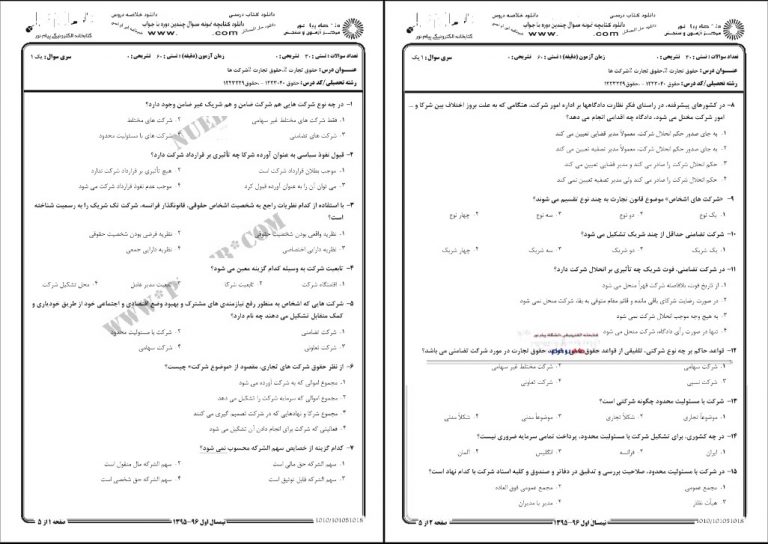 دانلود کتاب درسی
دانلود خلاصه دروس
دانلود کتابچه نمونه سوال چندین دوره با جواب
WWW. .COM
کتابخانه الکترونیکی پیام نور
مرکز آزمون و سنجش
تعداد سوالات : تستی : ۳۰ تشریحی : ۰
زمان آزمون (دقیقه) : تستی : ۶۰ تشریحی : ۰
سری سوال : یک ۱
عنوان درس : حقوق تجارت ۲، حقوق تجارت ۲(شرکت ها
رشته تحصیلی/کد درس : حقوق ۱۲۲۳۰۴۰ -
۱- در چه نوع شرکت هایی هم شرکت ضامن و هم شریک غیر ضامن وجود دارد؟
۱. فقط شرکت های مختلط غیر سهامی
۲. شرکت های مختلط
۳. شرکت های تضامنی
۴. شرکت های با مسئولیت محدود
۲- قبول نفوذ سیاسی به عنوان آورده شرکا چه تأثیری بر قرارداد شرکت دارد؟
۱. موجب بطلان قرارداد شرکت است
۲. هیچ تأثیری بر قرارداد شرکت ندارد
۳. می توان آن را به عنوان آورده قبول کرد
۴. موجب عدم نفوذ قرارداد شرکت می شود
۳- با استفاده از کدام نظریات راجع به شخصیت اشخاص حقوقی، قانونگذار فرانسه، شرکت تک شریک را به رسمیت شناخته
است؟
۱. نظریه واقعی بودن شخصیت حقوقی
۲. نظریه فرضی بودن شخصیت حقوقی
۳. نظریه دارایی اختصاصی
۴. نظریه دارایی جمعی
۴- تابعیت شرکت به وسیله کدام گزینه معین می شود؟
۱. اقامتگاه شرکت
۲. تابعیت شرکا
۳. تابعیت مدیر عامل
۴. محل تشکیل شرکت
۵- شرکت هایی که اشخاص به منظور رفع نیازمندی های مشترک و بهبود وضع اقتصادی و اجتماعی خود از طریق خودیاری و
کمک متقابل تشکیل می دهند چه نام دارد؟
۱. شرکت تضامنی
۲. شرکت با مسئولیت محدود
۳. شرکت تعاونی
۴. شرکت سهامی
۶- از نظر حقوق شرکت های تجاری، مقصود از «موضوع شرکت» چیست؟
۱. مجموع اموالی که به شرکت آورده می شود
۲. مجموع اموالی که سرمایه شرکت را تشکیل می دهد
۳. مجموع شرکا و نهادهایی که در شرکت تصمیم گیری می کنند
۴. فعالیتی که شرکت برای انجام دادن آن تشکیل می شود
۷- کدام گزینه از خصایص سهم الشرکه محسوب نمی شود؟
۱. سهم الشرکه حق مالی است
۲. سهم الشرکه مال منقول است
۳. سهم الشرکه قابل توثیق است
۴. سهم الشرکه حق شخصی است
صفحه ۱ از ۵
نیمسال اول ۹۶-۱۳۹۵
1010/101051018
دانلود کتاب درسی
دانلود خلاصه دروس
دانلود کتابچه نمونه سوال چندین دوره با جواب
WWW. .COM
کتابخانه الکترونیکی پیام نور
مرکز آزمون و سنجش
تعداد سوالات : تستی : ۳۰ تشریحی : ۰
زمان آزمون (دقیقه) : تستی : ۶۰ تشریحی : ۰
سری سوال : ۱ یک
عنوان درس : حقوق تجارت ۲، حقوق تجارت ۲(شرکت ها
رشته تحصیلی/کد درس : حقوق ۱۲۲۳۰۴۰ -
۸- در کشورهای پیشرفته، در راستای فکر نظارت دادگاهها بر اداره امور شرکت، هنگامی که به علت بروز اختلاف بین شرکا و ...
امور شرکت مختل می شود، دادگاه چه اقدامی انجام می دهد؟
۱. به جای صدور حکم انحلال شرکت، معمولاً مدیر قضایی تعیین می کند
۲. به جای صدور حکم انحلال شرکت، معمولاً مدیر تصفیه تعیین نمی کند
۳. حکم انحلال شرکت را صادر می کند و مدیر قضایی تعیین می کند
۴. حکم انحلال شرکت را صادر می کند ولی مدیر تصفیه تعیین نمی کند
۹- «شرکت های اشخاص» موضوع قانون تجارت به چند نوع تقسیم می شوند؟
۱. یک نوع
۲. دو نوع
۳. سه نوع
۴. چهار نوع
۱۰- شرکت تضامنی حداقل از چند شریک تشکیل می شود؟
۱. یک شریک
۲. دو شریک
۳. سه شریک
۴. چهار شریک
۱۱- در شرکت تضامنی، فوت شریک چه تأثیری بر انحلال شرکت دارد؟
۱. از تاریخ فوت، بلافاصله شرکت قهراً منحل می شود
۲. در صورت رضایت شرکای باقی مانده و قائم مقام متوفی به بقاء شرکت منحل نمی شود
۳. به هیچ وجه موجب انحلال شرکت نمی شود
۴. تنها در صورت رأی دادگاه، شرکت منحل می شود
کتابخانه الکترونیکی دانشگاه پیام نور
۱۲- قواعد حاکم بر چه نوع شرکتی، تلفیقی از قواعد حقوق حقوق تجارت در مورد شرکت تضامنی می باشد؟
۱. شرکت سهامی
۲. شرکت مختلط غیر سهامی
۳. شرکت نسبی
۴. شرکت تعاونی
۱۳- شرکت با مسئولیت محدود چگونه شرکتی است؟
۱. موضوعاً تجاری
۲. شکلاً تجاری
۳. موضوعاً مدنی
۴. شکلاً مدنی
۱۴- در چه کشوری، برای تشکیل شرکت با مسئولیت محدود، پرداخت تمامی سرمایه ضروری نیست؟
۱. ایران
۲. فرانسه
۳. انگلیس
۴. آلمان
۱۵- در شرکت با مسئولیت محدود، صلاحیت بررسی و تدقیق در دفاتر و صندوق و کلیه اسناد شرکت با کدام نهاد است؟
۱. مجمع عمومی
۲. مجمع عمومی فوق العاده
۳. هیأت نظار
۴. مدیر یا مدیران
صفحه ۲ از ۵
نیمسال اول ۹۶-۱۳۹۵
1010/101051018